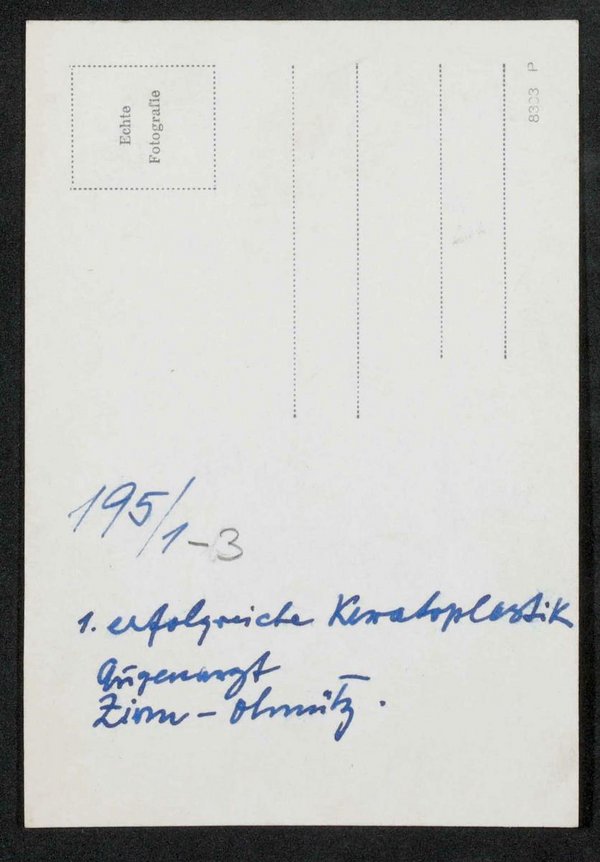 Echte
Fotografie
8303 P
195/1-3
1. erfolgreiche Keratoplastik
Augenarzt
Zirm - Olmütz.